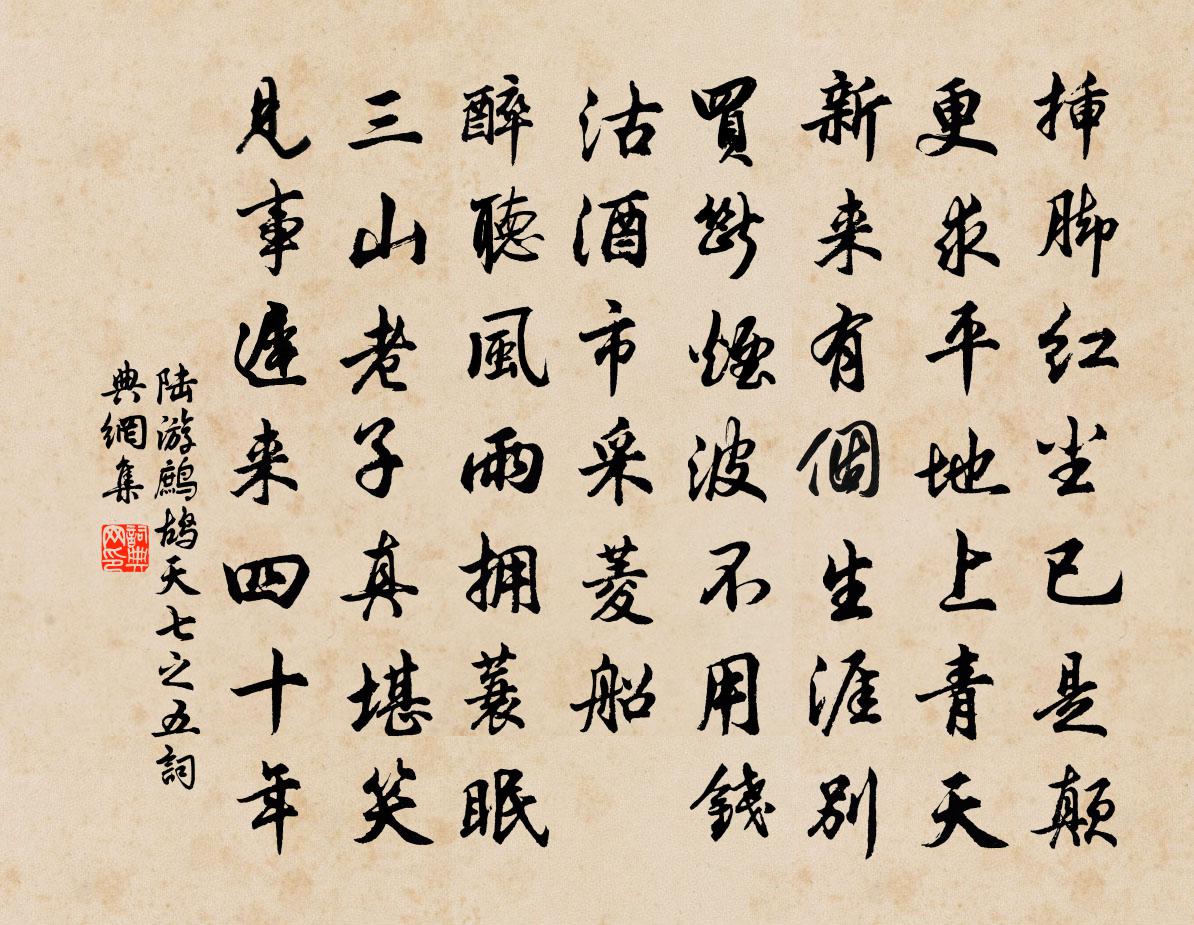 挿脚红尘已是颠
更求平地上青天
新来有個生涯別
買斷煙波不用錢
沽酒市采菱船
醉聽風雨拥蓑眠
三山老子真堪笑
見事遲来四十年
陆游鷓鴣天七之五詞
典網集
詞典
网印